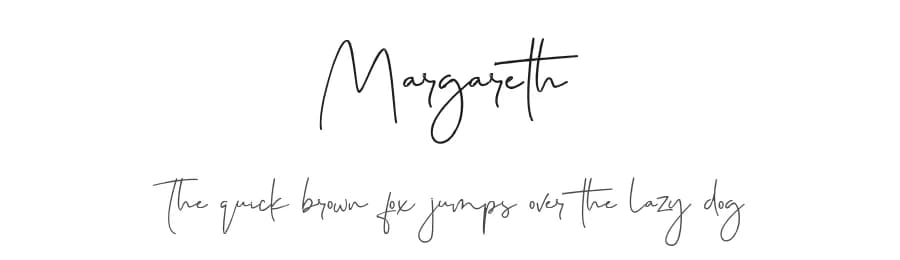 Margareth
The quick brown fox jumps over the lazy dog